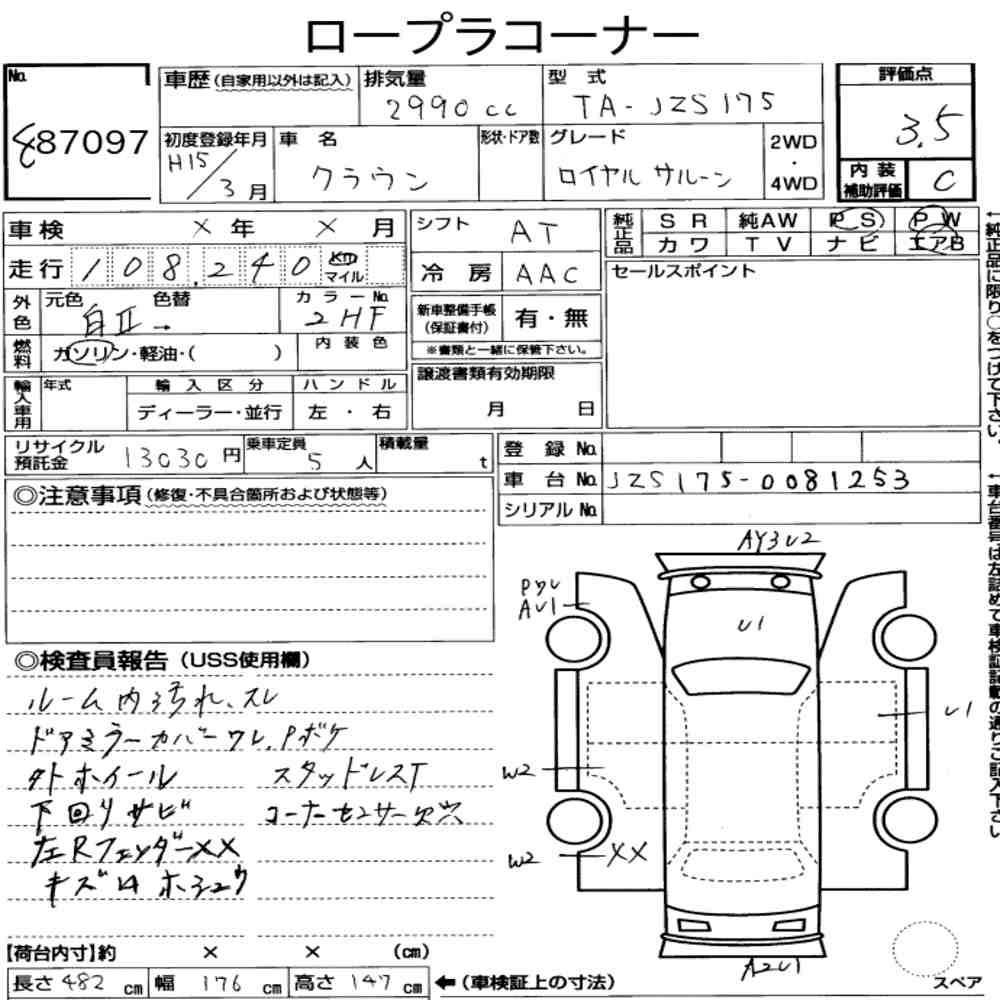 ロープラコーナー
No. 87097
車歴(自家用以外は記入) 排気量 2990cc 型式 TA-JZS175 評価点 3.5
初度登録年月 H15/3月 車名 クラウン 形状・ドア数 グレード ロイヤルサルーン 2WD・4WD 内装補助評価 C
車検 × 年 × 月 シフト AT 純正品 SR 純AW PS PW
カワ TV ナビ エアB
走行 108,240 km マイル 冷房 AAC セールスポイント
外色 元色 白II→ 色替 カラーNo. 2HF 新車整備手帳(保証書付) 有・無
燃料 ガソリン・軽油・( ) 内装色 ※書類と一緒に保管下さい。
輸入車用 年式 輸入区分 ハンドル 譲渡書類有効期限
ディーラー・並行 左・右 月 日
リサイクル預託金 13030円 乗車定員 5人 積載量 t 登録No.
車台No. JZS175-0081253
シリアルNo.
◎注意事項(修復・不具合箇所および状態等)
←純正品に限り○をつけて下さい。
←車台番号は左詰めで車検証記載の通りご記入下さい
◎検査員報告(USS使用欄)
ルーム内汚れ、スレ
ドアミラーカバーワレ、Pボケ
外ホイール スタッドレスT
下回りサビ コーナーセンサー欠穴
左RフェンダーXX
キズ凹ホシュウ
AY3U2
Pワレ
AU1
U1
U1
W2
W2 XX
A2U1
スペア
【荷台内寸】約 × × (cm)
長さ482cm 幅176cm 高さ147cm ←(車検証上の寸法)